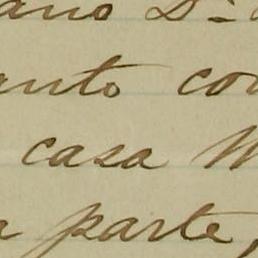 ano D.-
anto con
casa W
a parte,